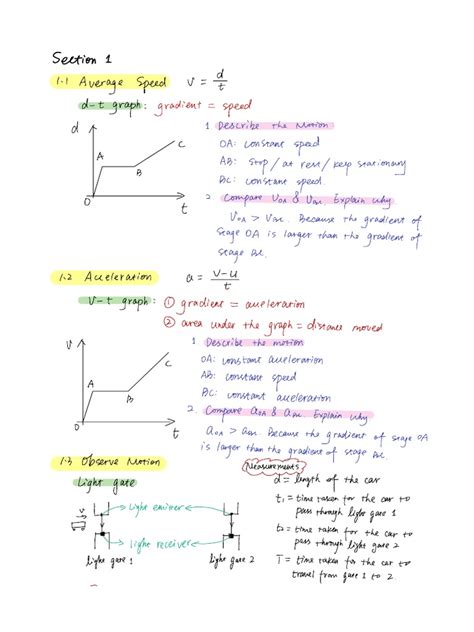 Section 1
1.1 Average Speed v = d/t
d-t graph: gradient = speed
d
A
B
C
O
t
1 Describe the Motion
OA: constant speed
AB: stop / at rest / keep stationary
BC: constant speed.
2 Compare VOA & VBC. Explain why
VOA > VBC. Because the gradient of
stage OA is larger than the gradient of
stage BC.
1.2 Acceleration a = v-u/t
V-t graph: ① gradient = acceleration
② area under the graph = distance moved
V
A
B
C
O
t
1. Describe the motion
OA: constant acceleration
AB: constant speed
BC: constant acceleration
2. Compare aOA & aBC. Explain why
aOA > aBC. Because the gradient of stage OA
is larger than the gradient of stage BC.
1.3 Observe Motion
Light gate
v
light emitter
light receiver
light gate 1
light gate 2
Measurements
d = length of the car
t1 = time taken for the car to
pass through light gate 1
t2 = time taken for the car to
pass through light gate 2
T = time taken for the car to
travel from gate 1 to 2.